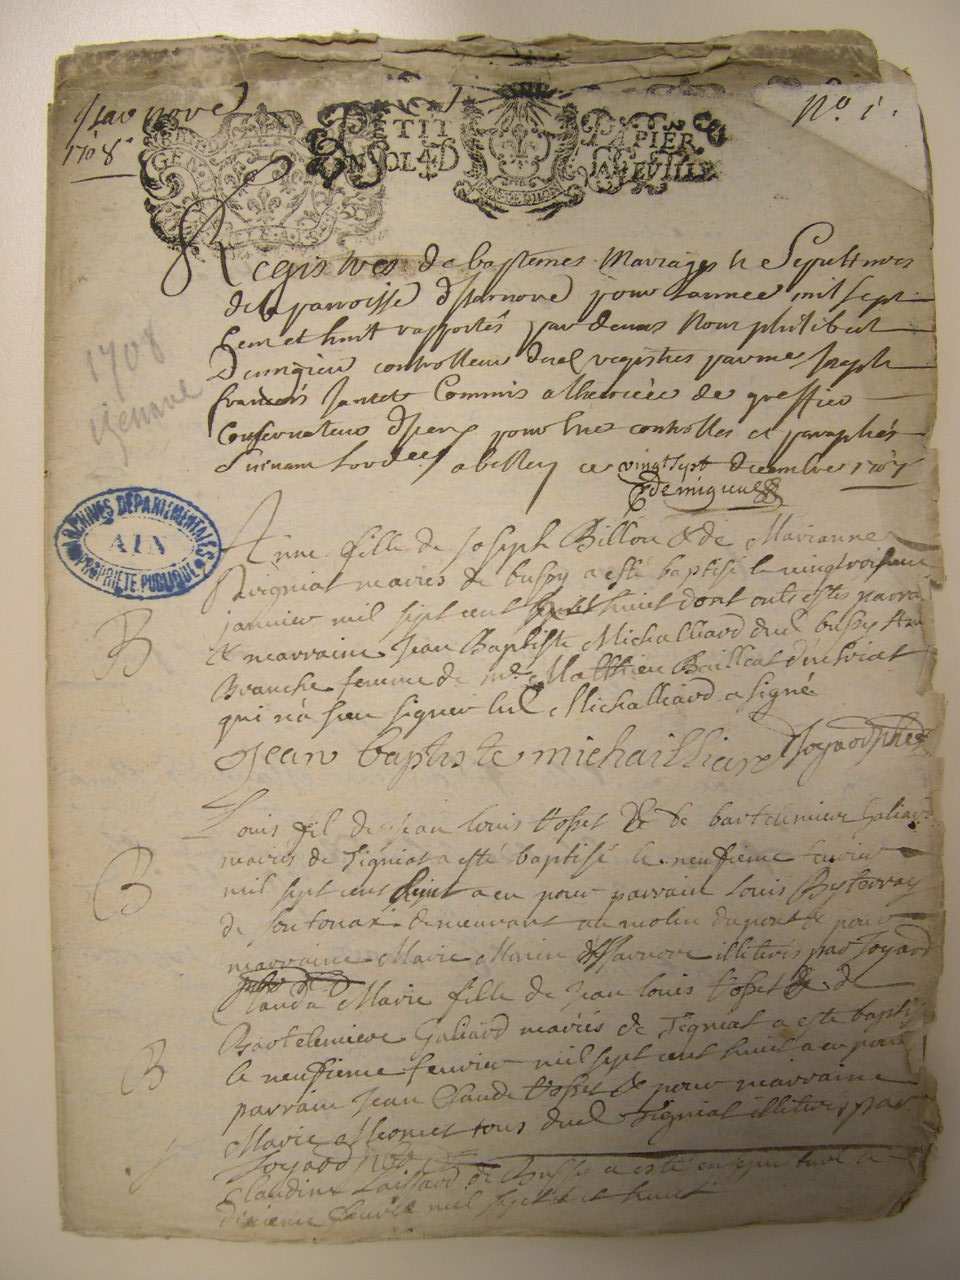 Isarnove
1708
No 1.
GEN
PETIT PAPIER
SOL 4 D LA FEUILLE
Registres de baptemes Mariages et Sepultures
de la parroisse d'Isarnove pour l'annee mil sept
cent et huit rapportés par devant Nous philibert
Demigieu controlleur desd registres par me Joseph
francois Jantet Commis a l'exercice de greffier
Conservateur pour Estre controlles et paraphés
a belley ce vingt sept decembre 1707
demigieu
1708
Izernove
ARCHIVES DÉPARTEMENTALES
AIN
PROPRIÉTÉ PUBLIQUE
B
Anne fille de Joseph Billon & de Marianne
mariés de bussy a esté baptisé le vingt troisieme
janvier mil sept cent huict dont onts estes parrain
& marraine Jean Baptiste Michalliard dud bussy &
Branche femme de mr Matthieu Bailleat
qui n'a sceu signer led Michalliard a signé
Jean baptiste michailliard Joyard
B
Louis fil de Jean louis tosset & de bartelemiere Galiard
mariés de Tigniat a esté baptisé le neufieme fevrier
mil sept cens huit a eu pour parrain Louis
de Sontonax demeurant au molin du pont & pour
marraine Marie Morin d'Isarnore illiterés par Joyard
B
Clauda Marie fille de Jean louis tosset & de
Bartelemiere Galiard mariés de Tigniat a este baptisé
le neuffieme fevrier mil sept cent huit a eu pour
parrain Jean Claude tosset & pour marraine
Marie tous dud Tigniat illiteres par
Joyard
Claudine de Bussy a esté
dixieme fevrier mil sept cent et huict